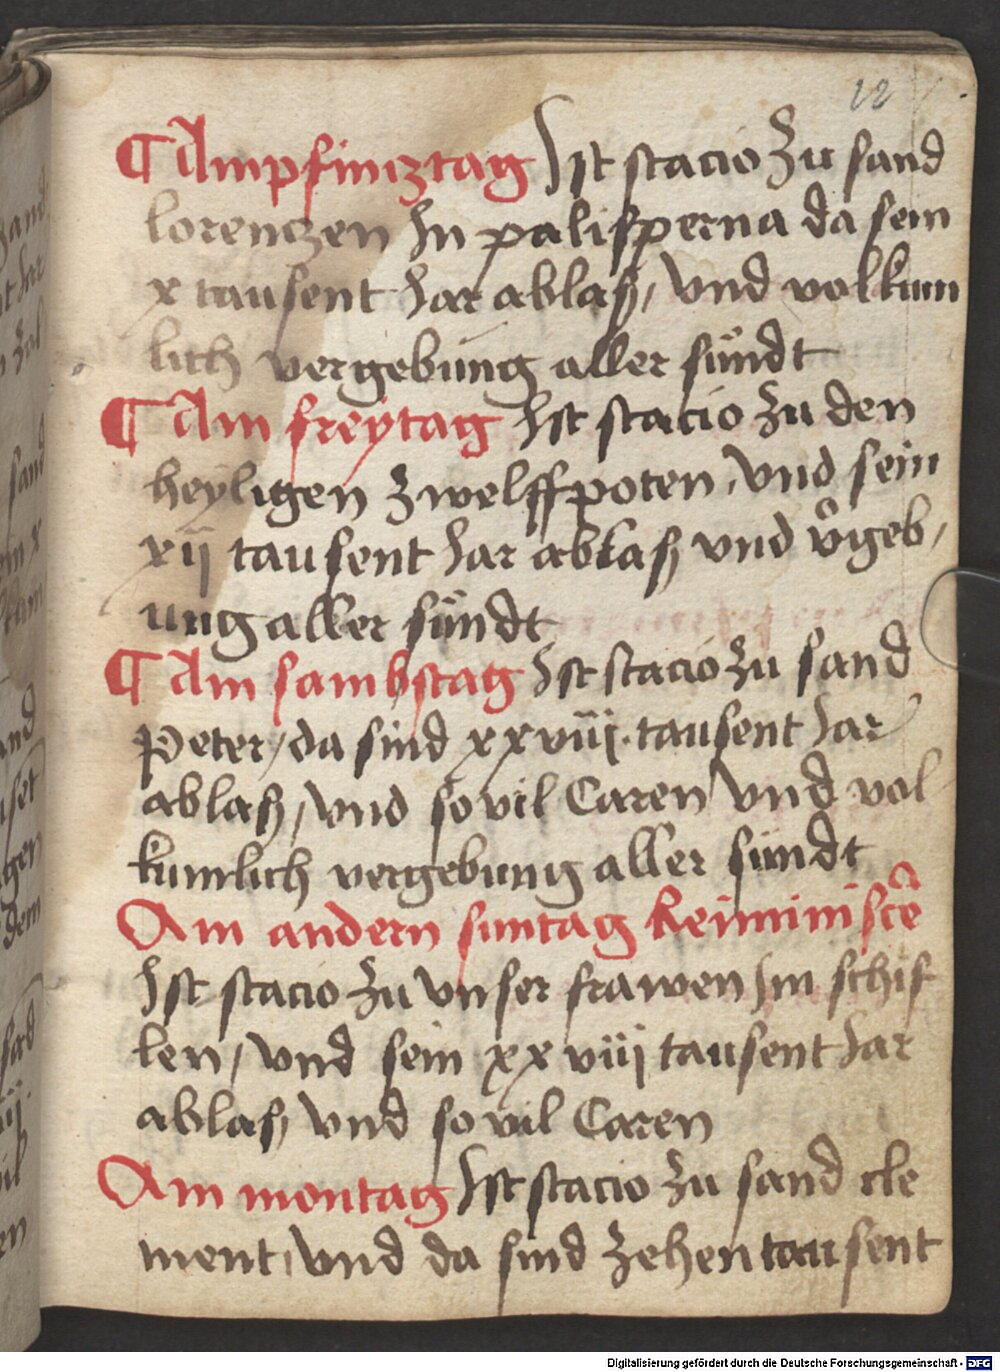 12
¶ Am pfincztag Ist stacio zu sand
lorenczen In palisperna da sein
x tausent Jar ablaß, vnd volkum
lich vergebung aller sündt
¶ Am freÿtag Ist stacio zu den
heÿligen zwelffpoten, vnd sein
xij tausent Jar ablaß vnd v̉geb,
ung aller sündt
¶ Am sambstag Ist stacio zu sand
Peter, da sind xxviij tausent Jar
ablaß, vnd so vil Caren vnd vol
kumlich vergebung aller sündt
Am andern suntag Reiminiscē
Ist stacio zu vnser frawen Im schif
len, vnd sein xxviij tausent Jar
ablaß vnd so vil Caren
Am montag Ist stacio zu sand cle
ment, vnd da sind zehen tausent
Digitalisierung gefördert durch die Deutsche Forschungsgemeinschaft - DFG